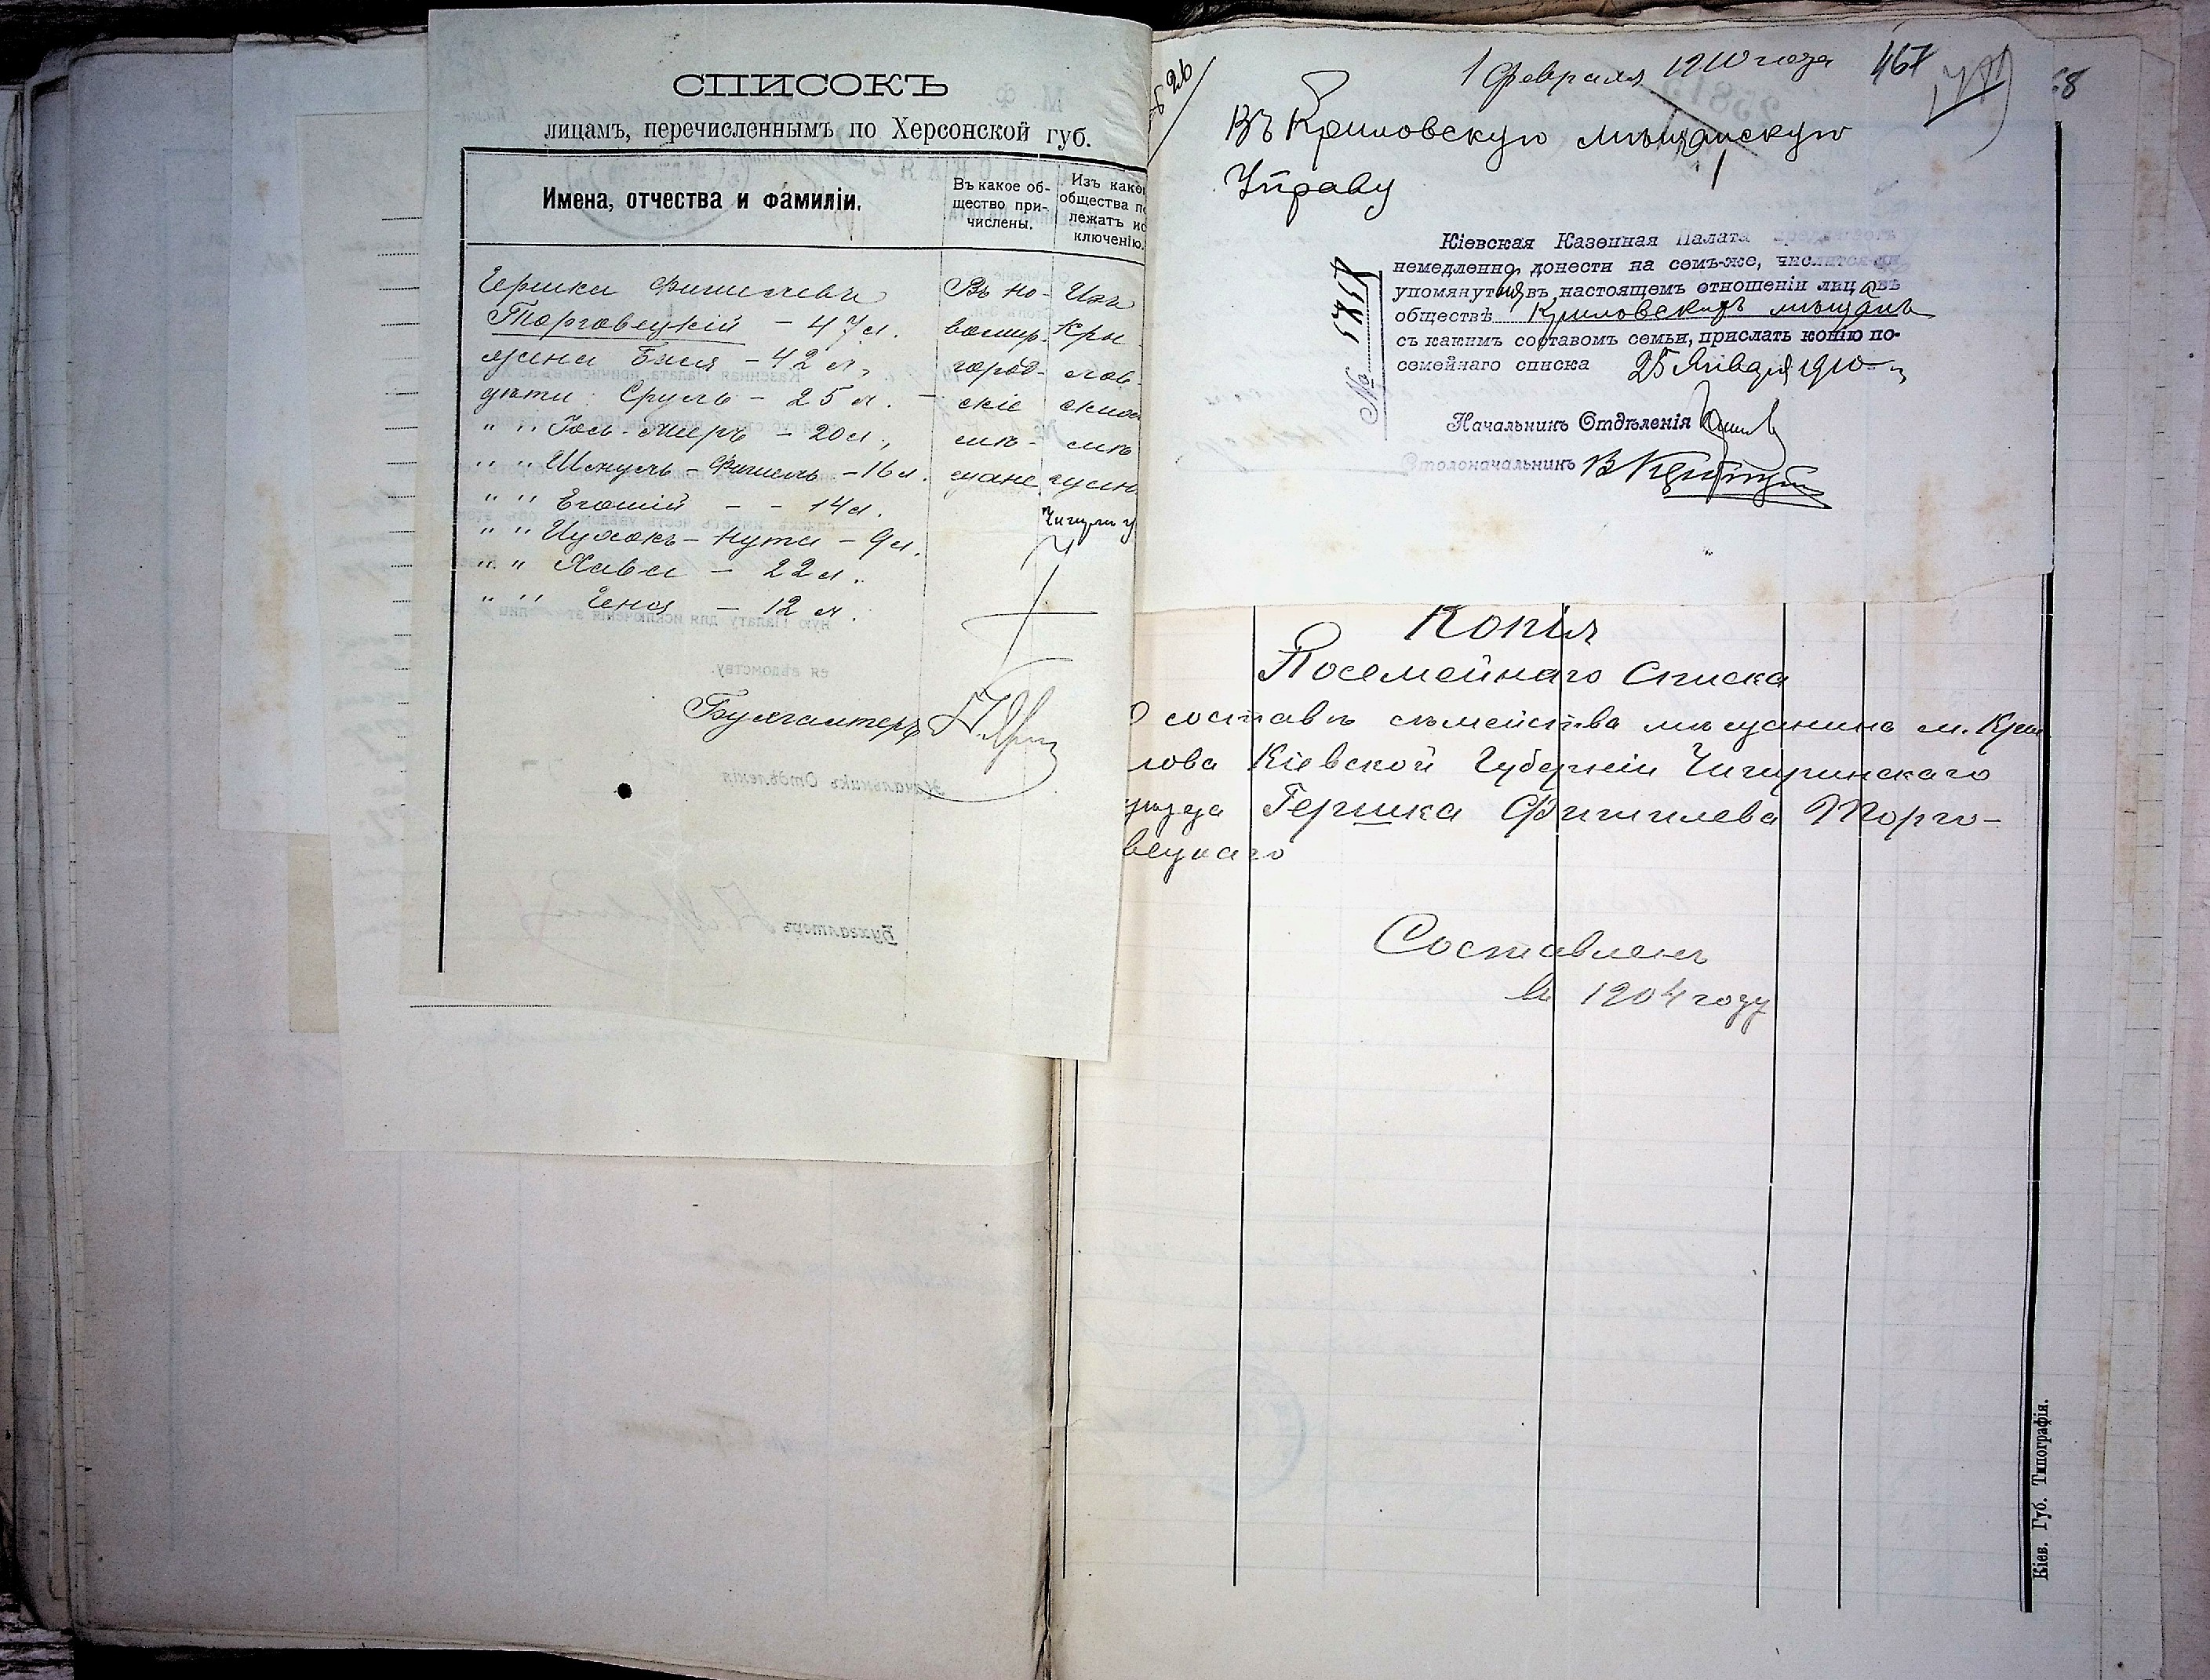 СПИСОКЪ
лицамъ, перечисленнымъ по Херсонской губ.
Имена, отчества и фамиліи.
Въ какое об-
щество при-
числены.
Изъ како
общества п
лежатъ ис
ключенію.
Гершка Фишилевъ
Торговецкій - 47 л.
жена Бася - 42 л.
дѣти: Сруль - 25 л. -
" " Іось-Меръ - 20 л.
" " Шмуль-Фишель - 16 л.
" " - - 14 л.
" " Ицхокъ-Нута - 9 л.
" " Хава - 22 л.
" " Геня - 12 л.
Въ Но-
вомир-
город-
скіе
мѣ-
щане
Изъ
Кры
лов-
ских
мѣ
щан
Чигир. у
Бухгалтеръ
1 февраля 1910 года
467
68
Въ Крыловскую мѣщанскую
Управу
Кіевская Казенная Палата предлагаетъ
немедленно, донести на семъ-же, числится-ли
упомянутыя въ настоящемъ отношеніи лица въ
обществѣ Крыловскихъ мѣщанъ
съ какимъ составомъ семьи, прислать копію по-
семейнаго списка 25 Января 1910 г.
№ 1345
Начальникъ Отдѣленія
Столоначальникъ
Копія
Посемейнаго Списка
О составѣ съмейства мѣщанина м. Кры
лова Кіевской Губерніи Чигиринскаго
уѣзда Гершка Фишилева Торго-
вецкаго
Составленъ
въ 1904 году
Кіев. Губ. Типографія.